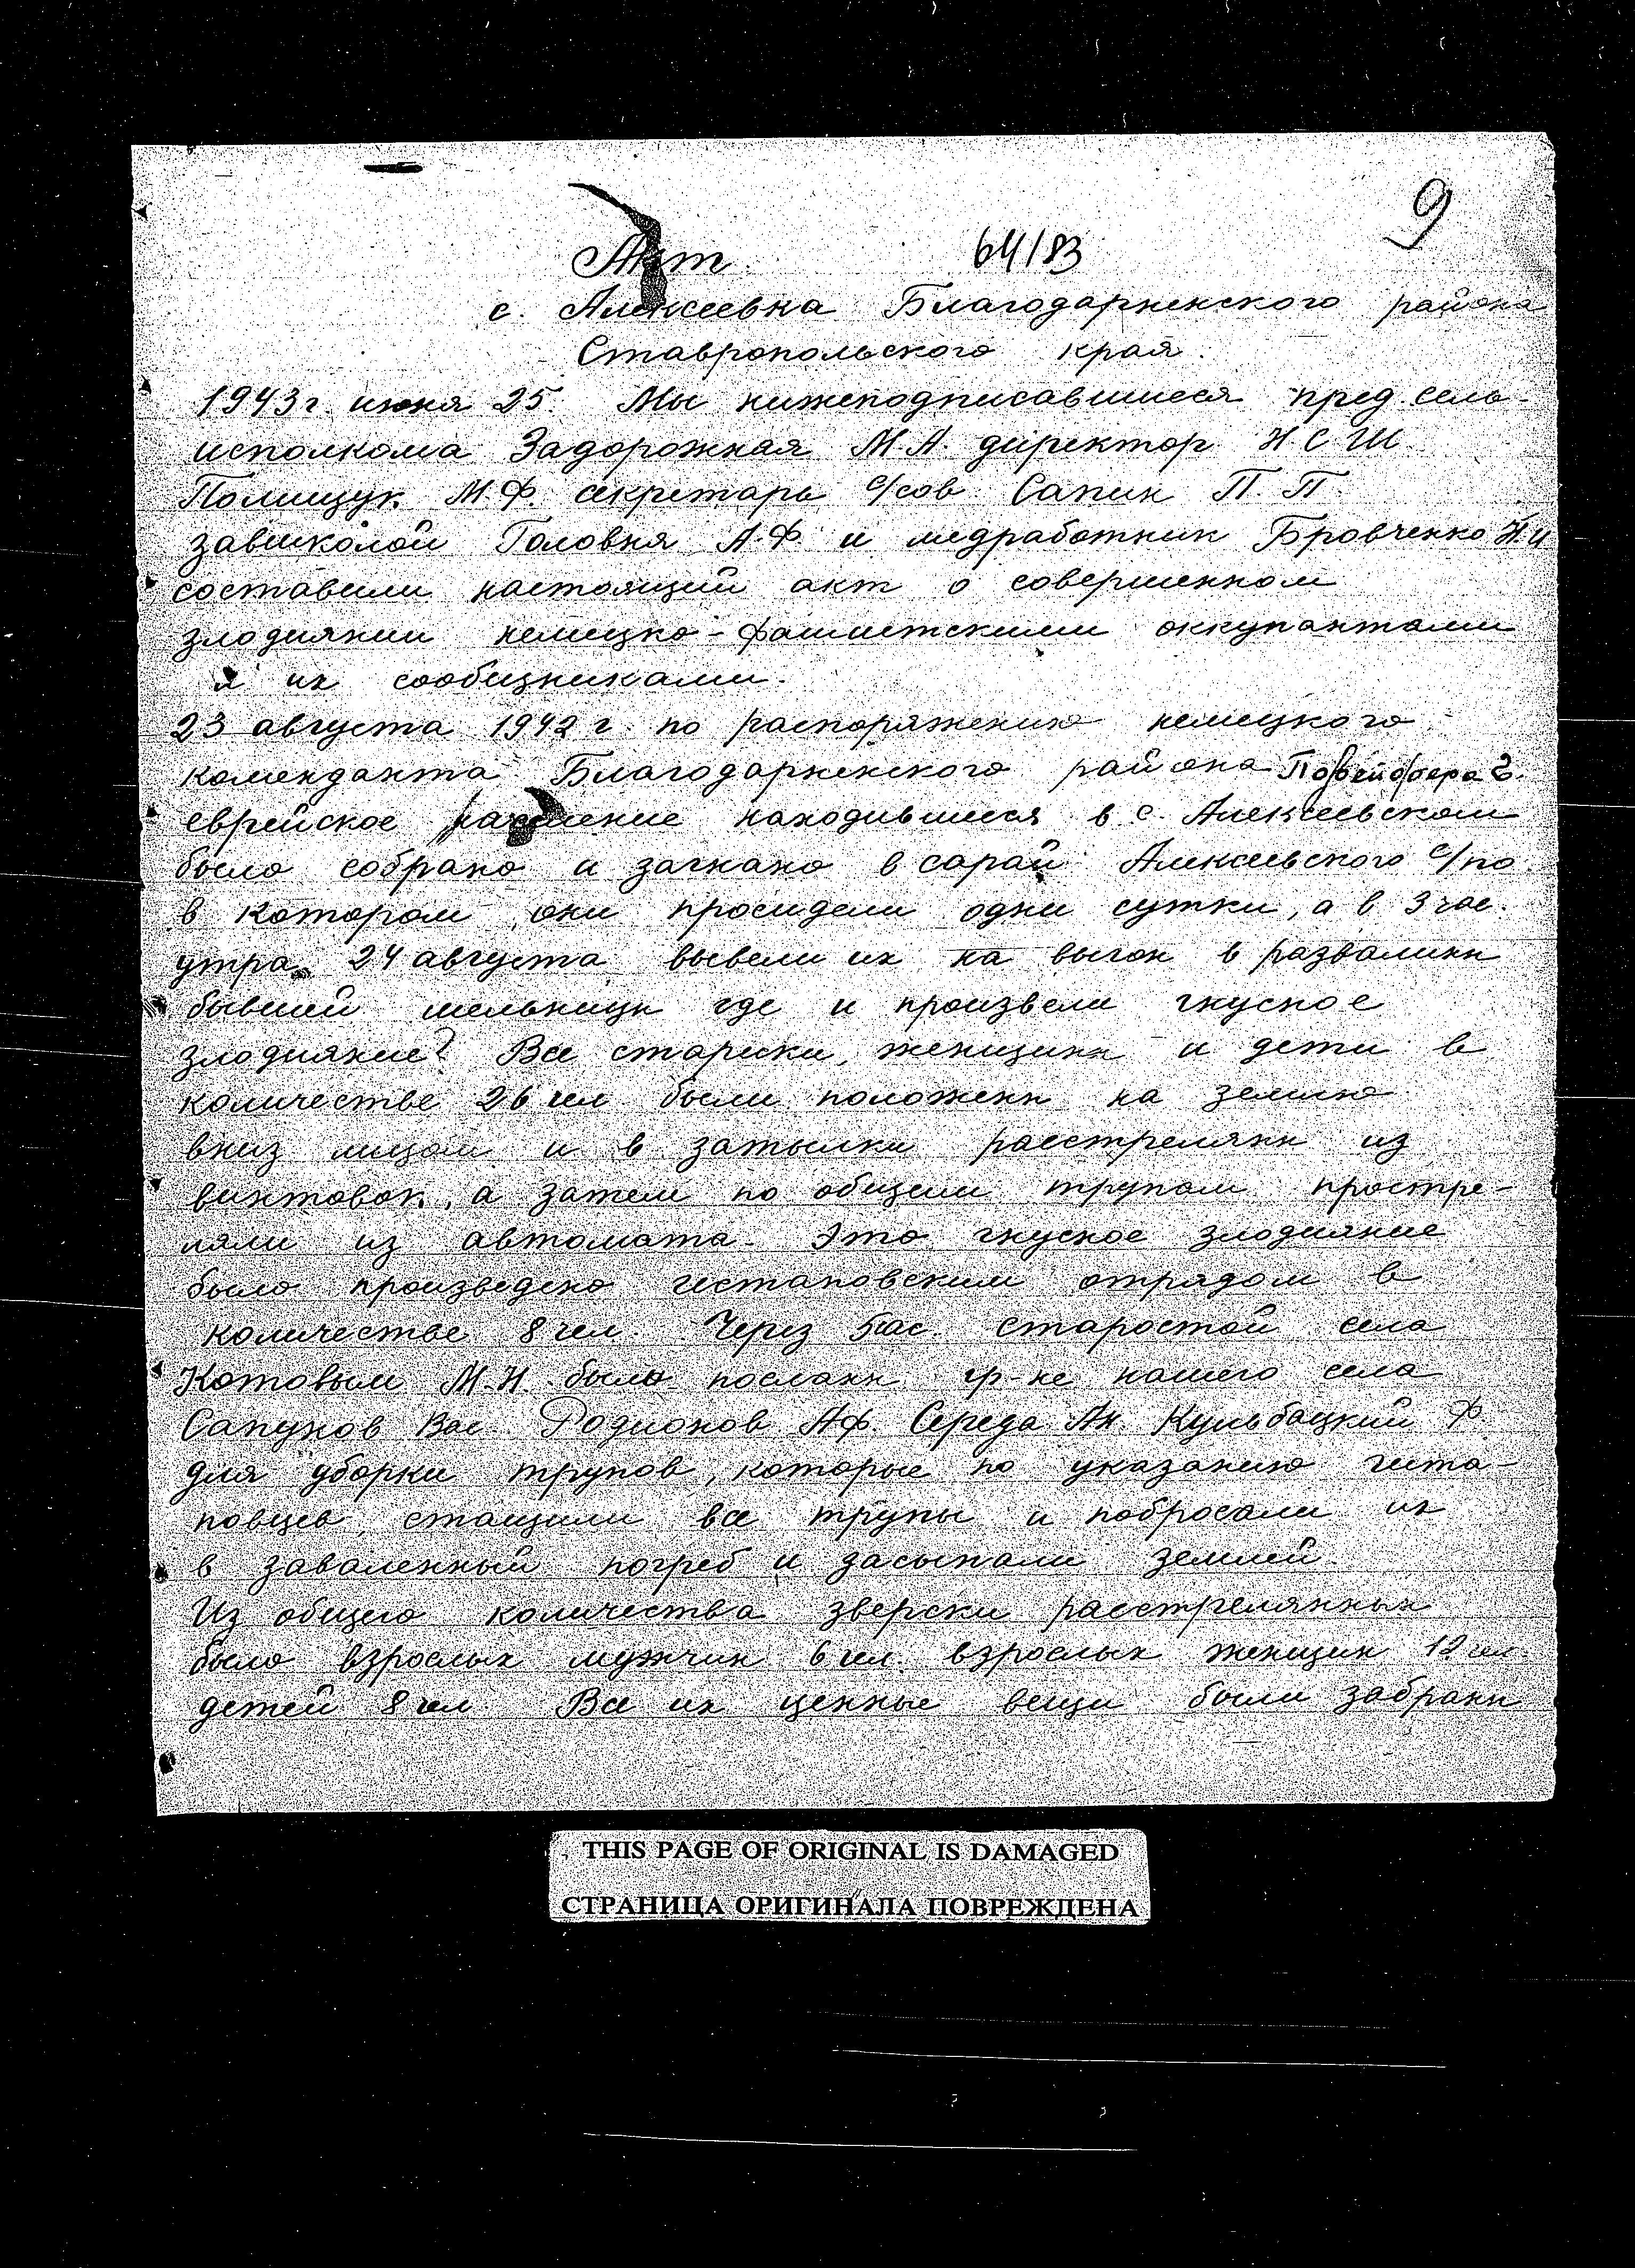 9
64/83
Акт
с. Алексеевка Благодарненского района
Ставропольского края.
1943 г. июня 25. Мы нижеподписавшиеся пред. сель-
исполкома Задорожная М.А. директор НСШ
Полищук М.Ф. секретарь с/сов. Сапин П.П.
завшколой Головня А.Ф. и медработник Бровченко Н.И
составили настоящий акт о совершенном
злодиянии немецко-фашистскими оккупантами
и их сообщниками.
23 августа 1942 г. по распоряжению немецкого
коменданта Благодарненского района
еврейское население находившиеся в с. Алексеевском
было собрано и загнано в сарай Алексеевского с/по
в котором они просидели одни сутки, а в 3 час.
утра 24 августа вывели их на выгон в развалины
бывшей мельницы где и произвели гнусное
злодияние? Все старики, женщины и дети в
количестве 26 чел были положены на землю
вниз лицом и в затылки расстреляны из
винтовок, а затем по общим трупам простре-
ляли из автомата. Это гнусное злодияние
было произведено гестаповским отрядом в
количестве 8 чел. Через 5 час. старостой села
Котовым М.Н. было посланы гр-не нашего села
Сапунов Вас. Родионов Аф. Середа Ан. Кульбацкий Ф.
для уборки трупов, которые по указанию геста-
повцев, стащили все трупы и побросали их
в заваленный погреб и засыпали землей.
Из общего количества зверски расстрелянных
было взрослых мужчин 6 чел. взрослых женщин 12 чел.
детей 8 чел. Все их ценные вещи были забраны
THIS PAGE OF ORIGINAL IS DAMAGED
СТРАНИЦА ОРИГИНАЛА ПОВРЕЖДЕНА